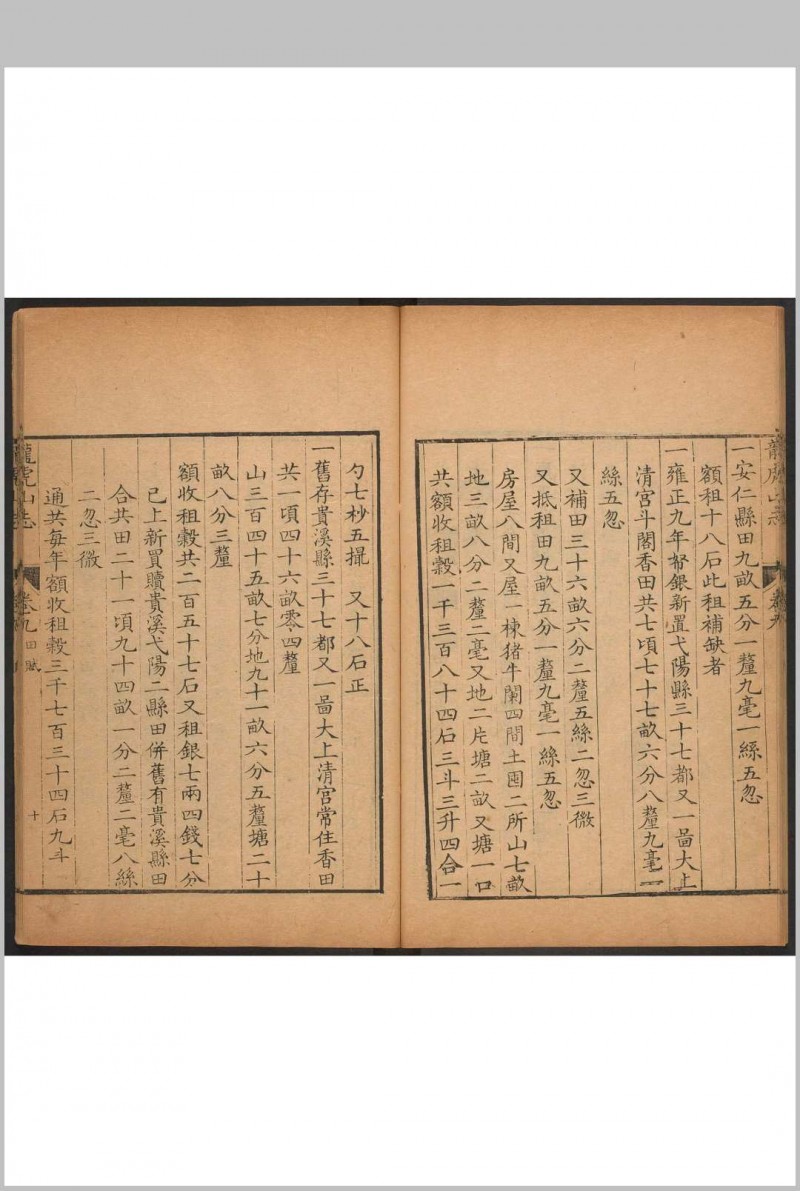 龍虎山志
卷九
一安仁縣田九畝五分一釐九毫一絲五忽
額租十八石此租補缺者
一雍正九年帑銀新置弋陽縣三十七都又一啚大上
清宮斗閣香田共七頃七十七畝六分八釐九毫一
絲五忽
又補田三十六畝六分二釐五絲二忽三微
又抵租田九畝五分一釐九毫一絲五忽
房屋八間又屋一棟猪牛闌四間土囤二所山七畝
地三畝八分二釐二毫又地二片塘二畝又塘一口
共額收租穀一千三百八十四石三斗三升四合一
勺七杪五撮　又十八石正
一舊存貴溪縣三十七都又一啚大上清宮常住香田
共一頃四十六畝零四釐
山三百四十五畝七分地九十一畝六分五釐塘二十
畝八分三釐
額收租穀共二百五十七石又租銀七兩四錢七分
已上新買贖貴溪弋陽二縣田併舊有貴溪縣田
合共田二十一頃九十四畝一分二釐二毫八絲
二忽三微
通共每年額收租穀三千七百三十四石九斗
龍虎山志
卷九田賦
十